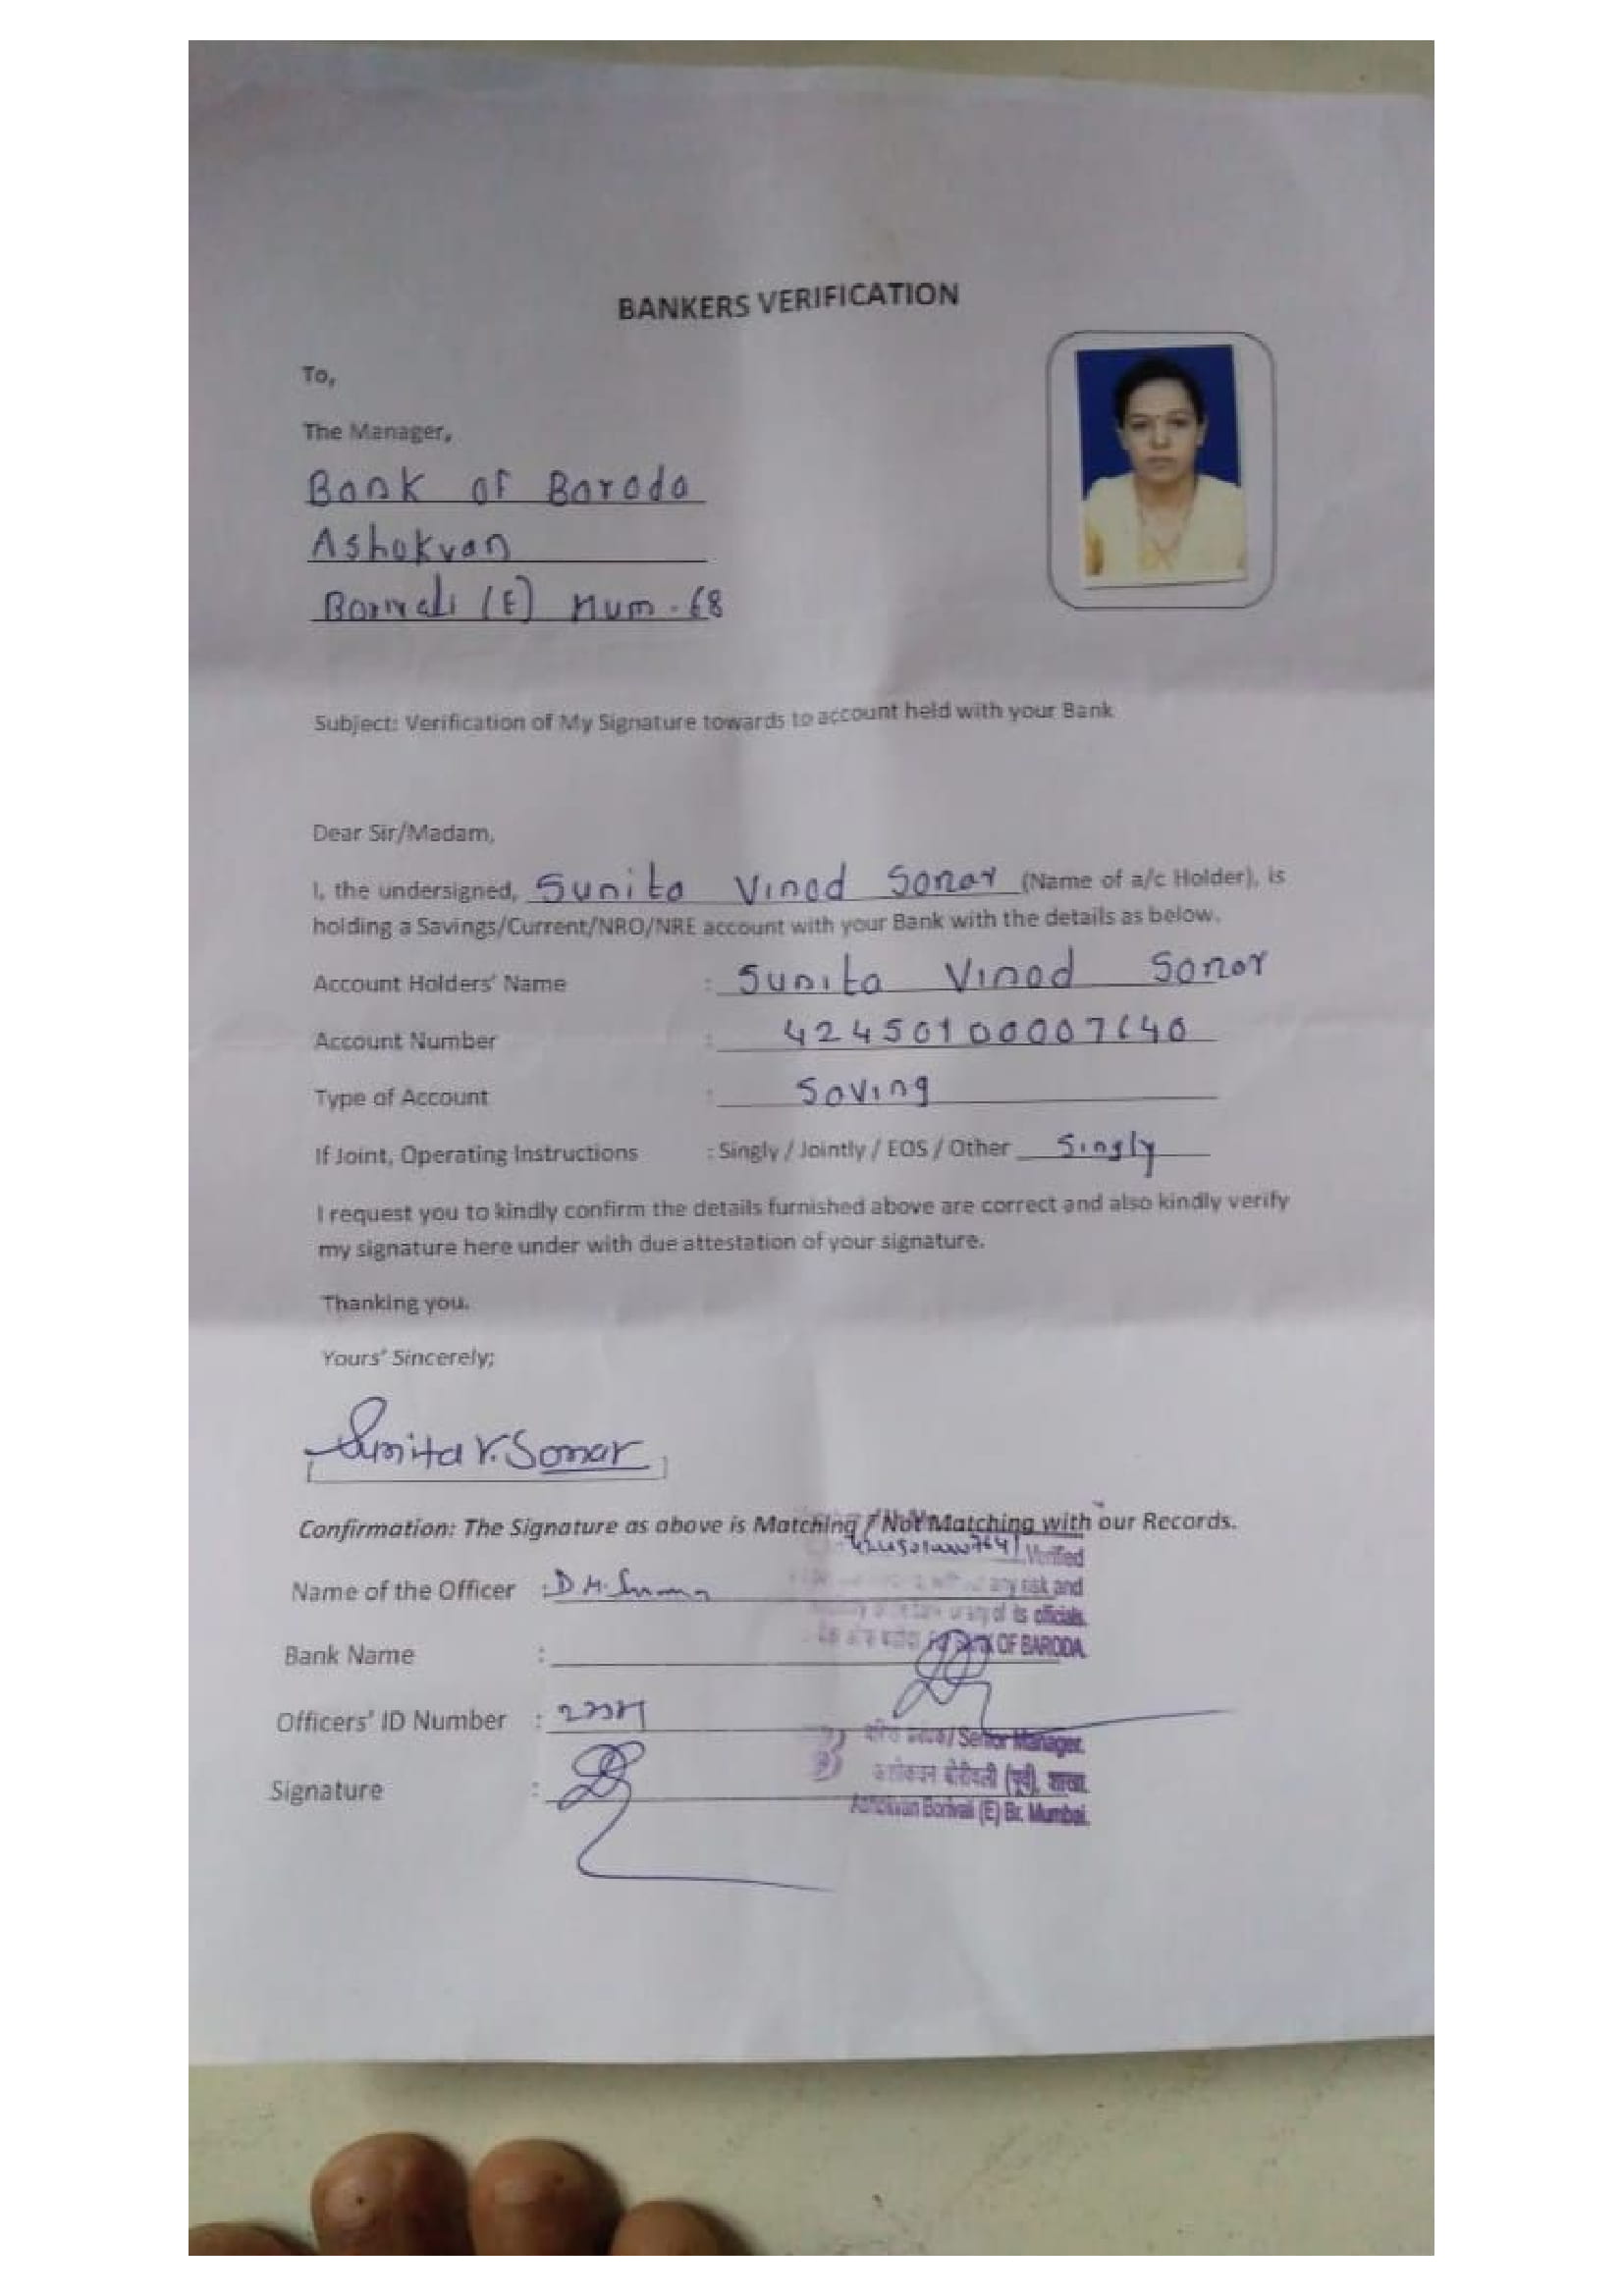 BANKERS VERIFICATION
To,
The Manager,
Bank of Baroda
Ashokvan
Borivali (E) Mum-68
Subject: Verification of My Signature towards to account held with your Bank
Dear Sir/Madam,
I, the undersigned, Sunita Vinod Sonar (Name of a/c Holder), is
holding a Savings/Current/NRO/NRE account with your Bank with the details as below.
Account Holders' Name : Sunita Vinod Sonar
Account Number : 42450100007640
Type of Account : Saving
If Joint, Operating Instructions : Singly / Jointly / EOS / Other Singly
I request you to kindly confirm the details furnished above are correct and also kindly verify
my signature here under with due attestation of your signature.
Thanking you.
Yours' Sincerely;
Sunita V. Sonar
Confirmation: The Signature as above is Matching / Not Matching with our Records.
Verified
Name of the Officer : D M.
any risk and
of its officials.
Bank Name :
OF BARODA
Officers' ID Number :
/ Senior Manager.
Signature :
बोरीवली (पूर्व), शाखा
Ashokvan Borivali (E) Br. Mumbai.